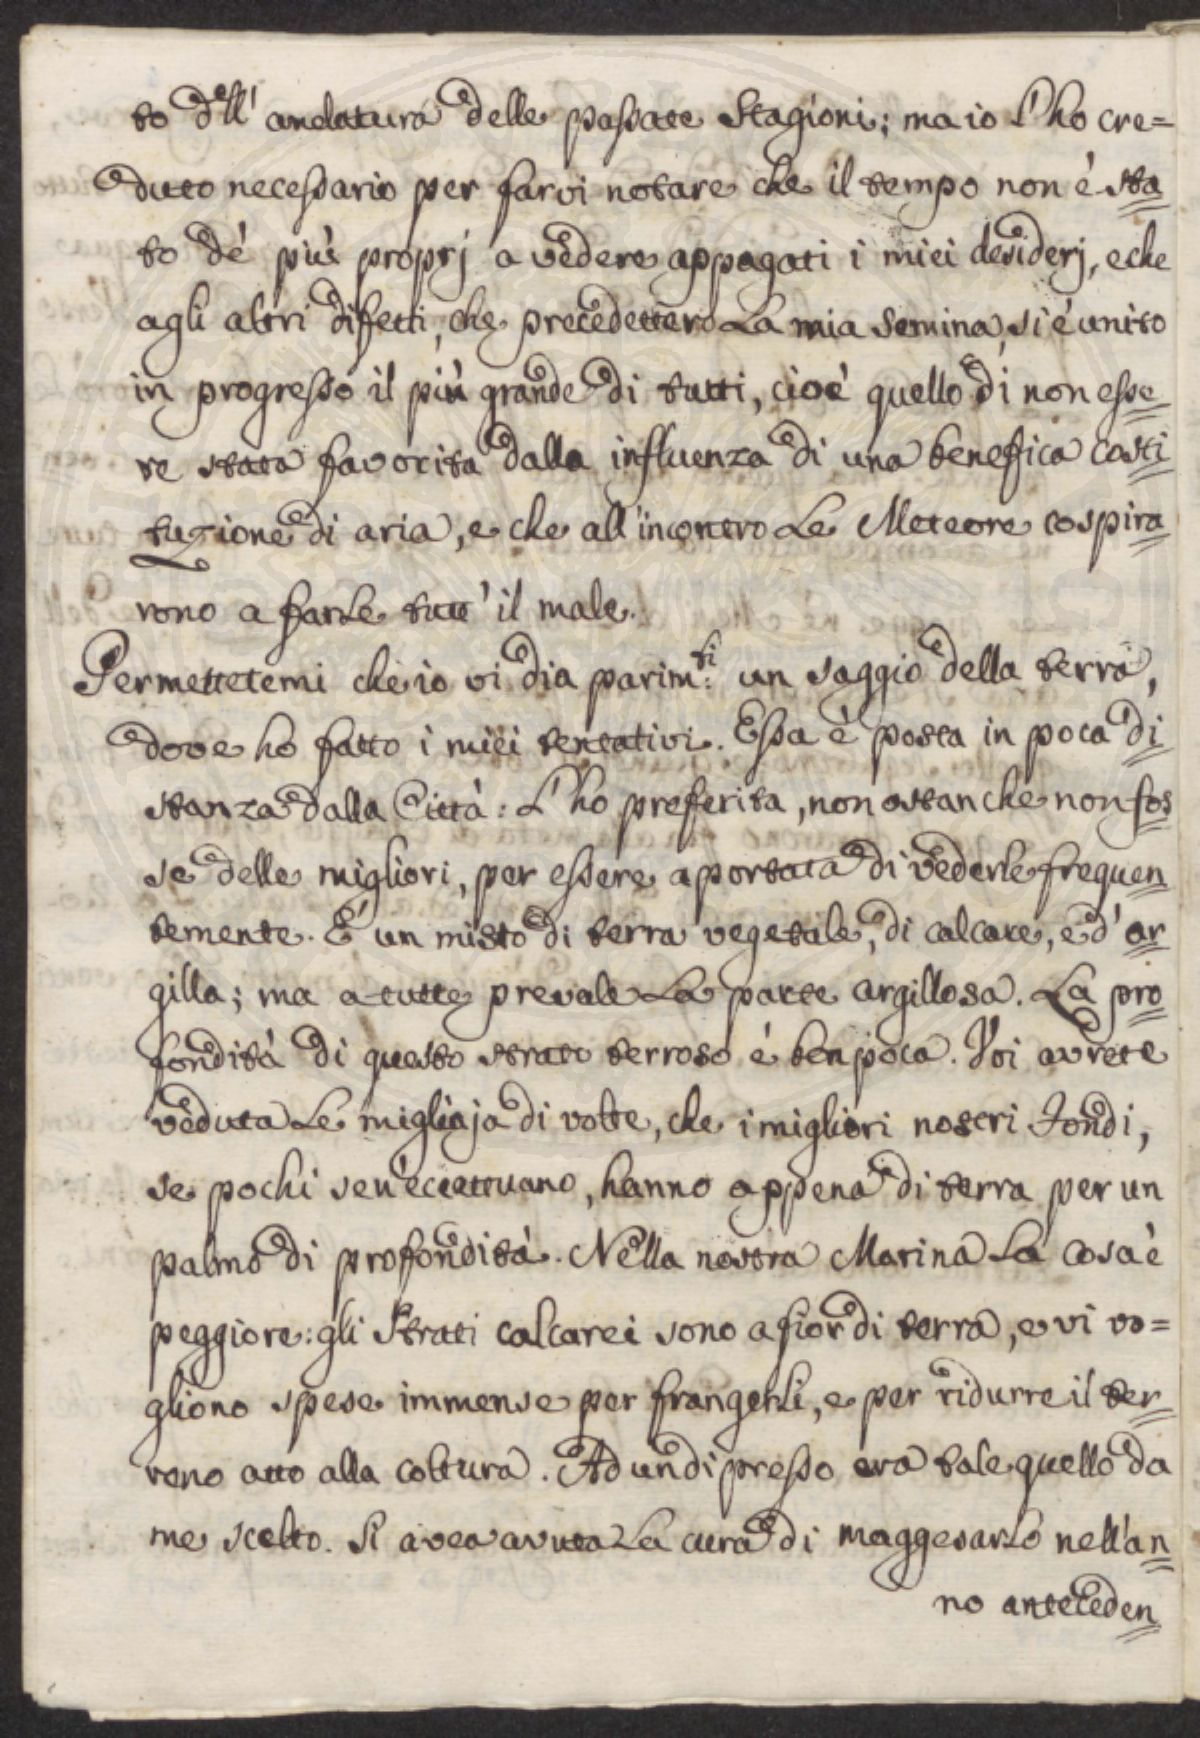 to dell' andatura delle passate Stagioni; ma io l'ho cre=
duto necessario per farvi notare che il tempo non è sta
to de' più proprj a vedere appagati i miei desiderj, e che
agli altri difetti, che precedettero la mia semina, si è unito
in progresso il più grande di tutti, cioè quello di non esse
re stata favorita dalla influenza di una beneffica costi
tuzione di aria, e che all'incontro le Meteore cospira
rono a farle tutt' il male.
Permettetemi che io vi dia parim:ti un saggio della terra,
dove ho fatto i miei tentativi. Essa è posta in poca di
stanza dalla Città: L'ho preferita, non ostan che non fos
se delle migliori, per essere a portata di vederle frequen
temente. È un misto di terra vegetale, di calcare, e d'ar
gilla; ma a tutte prevale la parte argillosa. La pro
fondità di questo strato terroso è ben poca. Voi avrete
veduta le migliaja di volte, che i migliori nostri Fondi,
se pochi sen'eccettuano, hanno appena di terra per un
palmo di profondità. Nella nostra Marina la cosa è
peggiore: gli Strati calcarei sono a fior di terra, e vi vo=
gliono spese immense per frangerli, e per ridurre il ter
reno atto alla coltura. Ad un di presso era tale quello da
me scelto. Si avea avuta la cura di maggesarlo nell'an
no anteceden